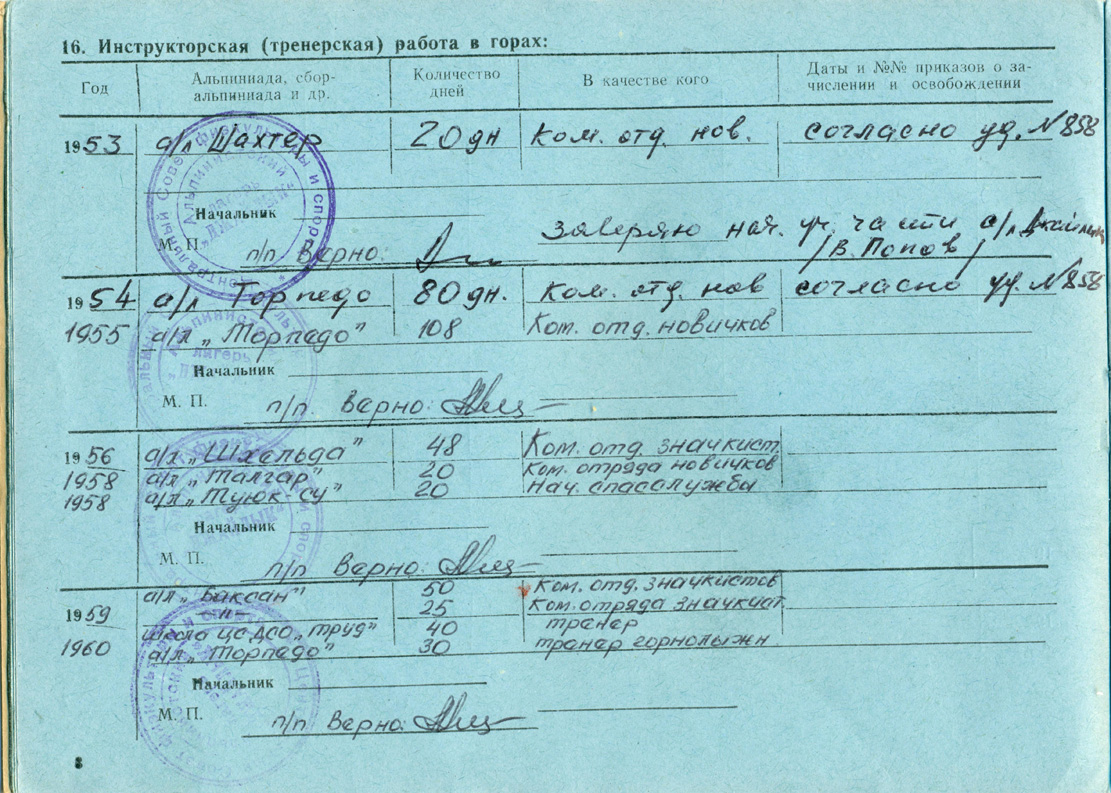 16. Инструкторская (тренерская) работа в горах:
Год Альпиниада, сбор- Количество В качестве кого Даты и №№ приказов о за-
альпиниада и др. дней числении и освобождении
1953 а/л Шахтер 20 дн Ком. отд. нов. согласно уд. № 858
Начальник
заверяю нач. уч. части а/л
М. П. п/п Верно: /В. Попов/
1954 а/л Торпедо 80 дн. Ком. отд. нов согласно уд. № 858
1955 а/л „Торпадо" 108 Ком. отд. новичков
Начальник
М. П. п/п Верно:
1956 а/л „Шхельда" 48 Ком. отд. значкист.
1958 а/л „Талгар" 20 Ком. отряда новичков
1958 а/л „Туюк-су" 20 Нач. спасслужбы
Начальник
М. П. п/п Верно:
а/л „Баксан" 50 Ком. отд. значкистов
1959 —"— 25 Ком. отряда значкист.
школа ЦС ДСО „Труд" 40 тренер
1960 а/л „Торпадо" 30 тренер горнолыжн
Начальник
М. П. п/п Верно:
8